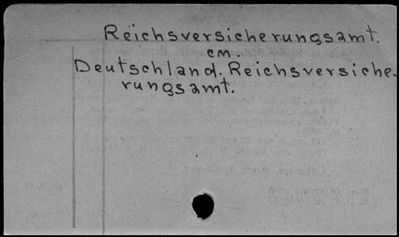 Reichsversicherungsamt.
см.
Deutschland. Reichsversiche-
rungsamt.